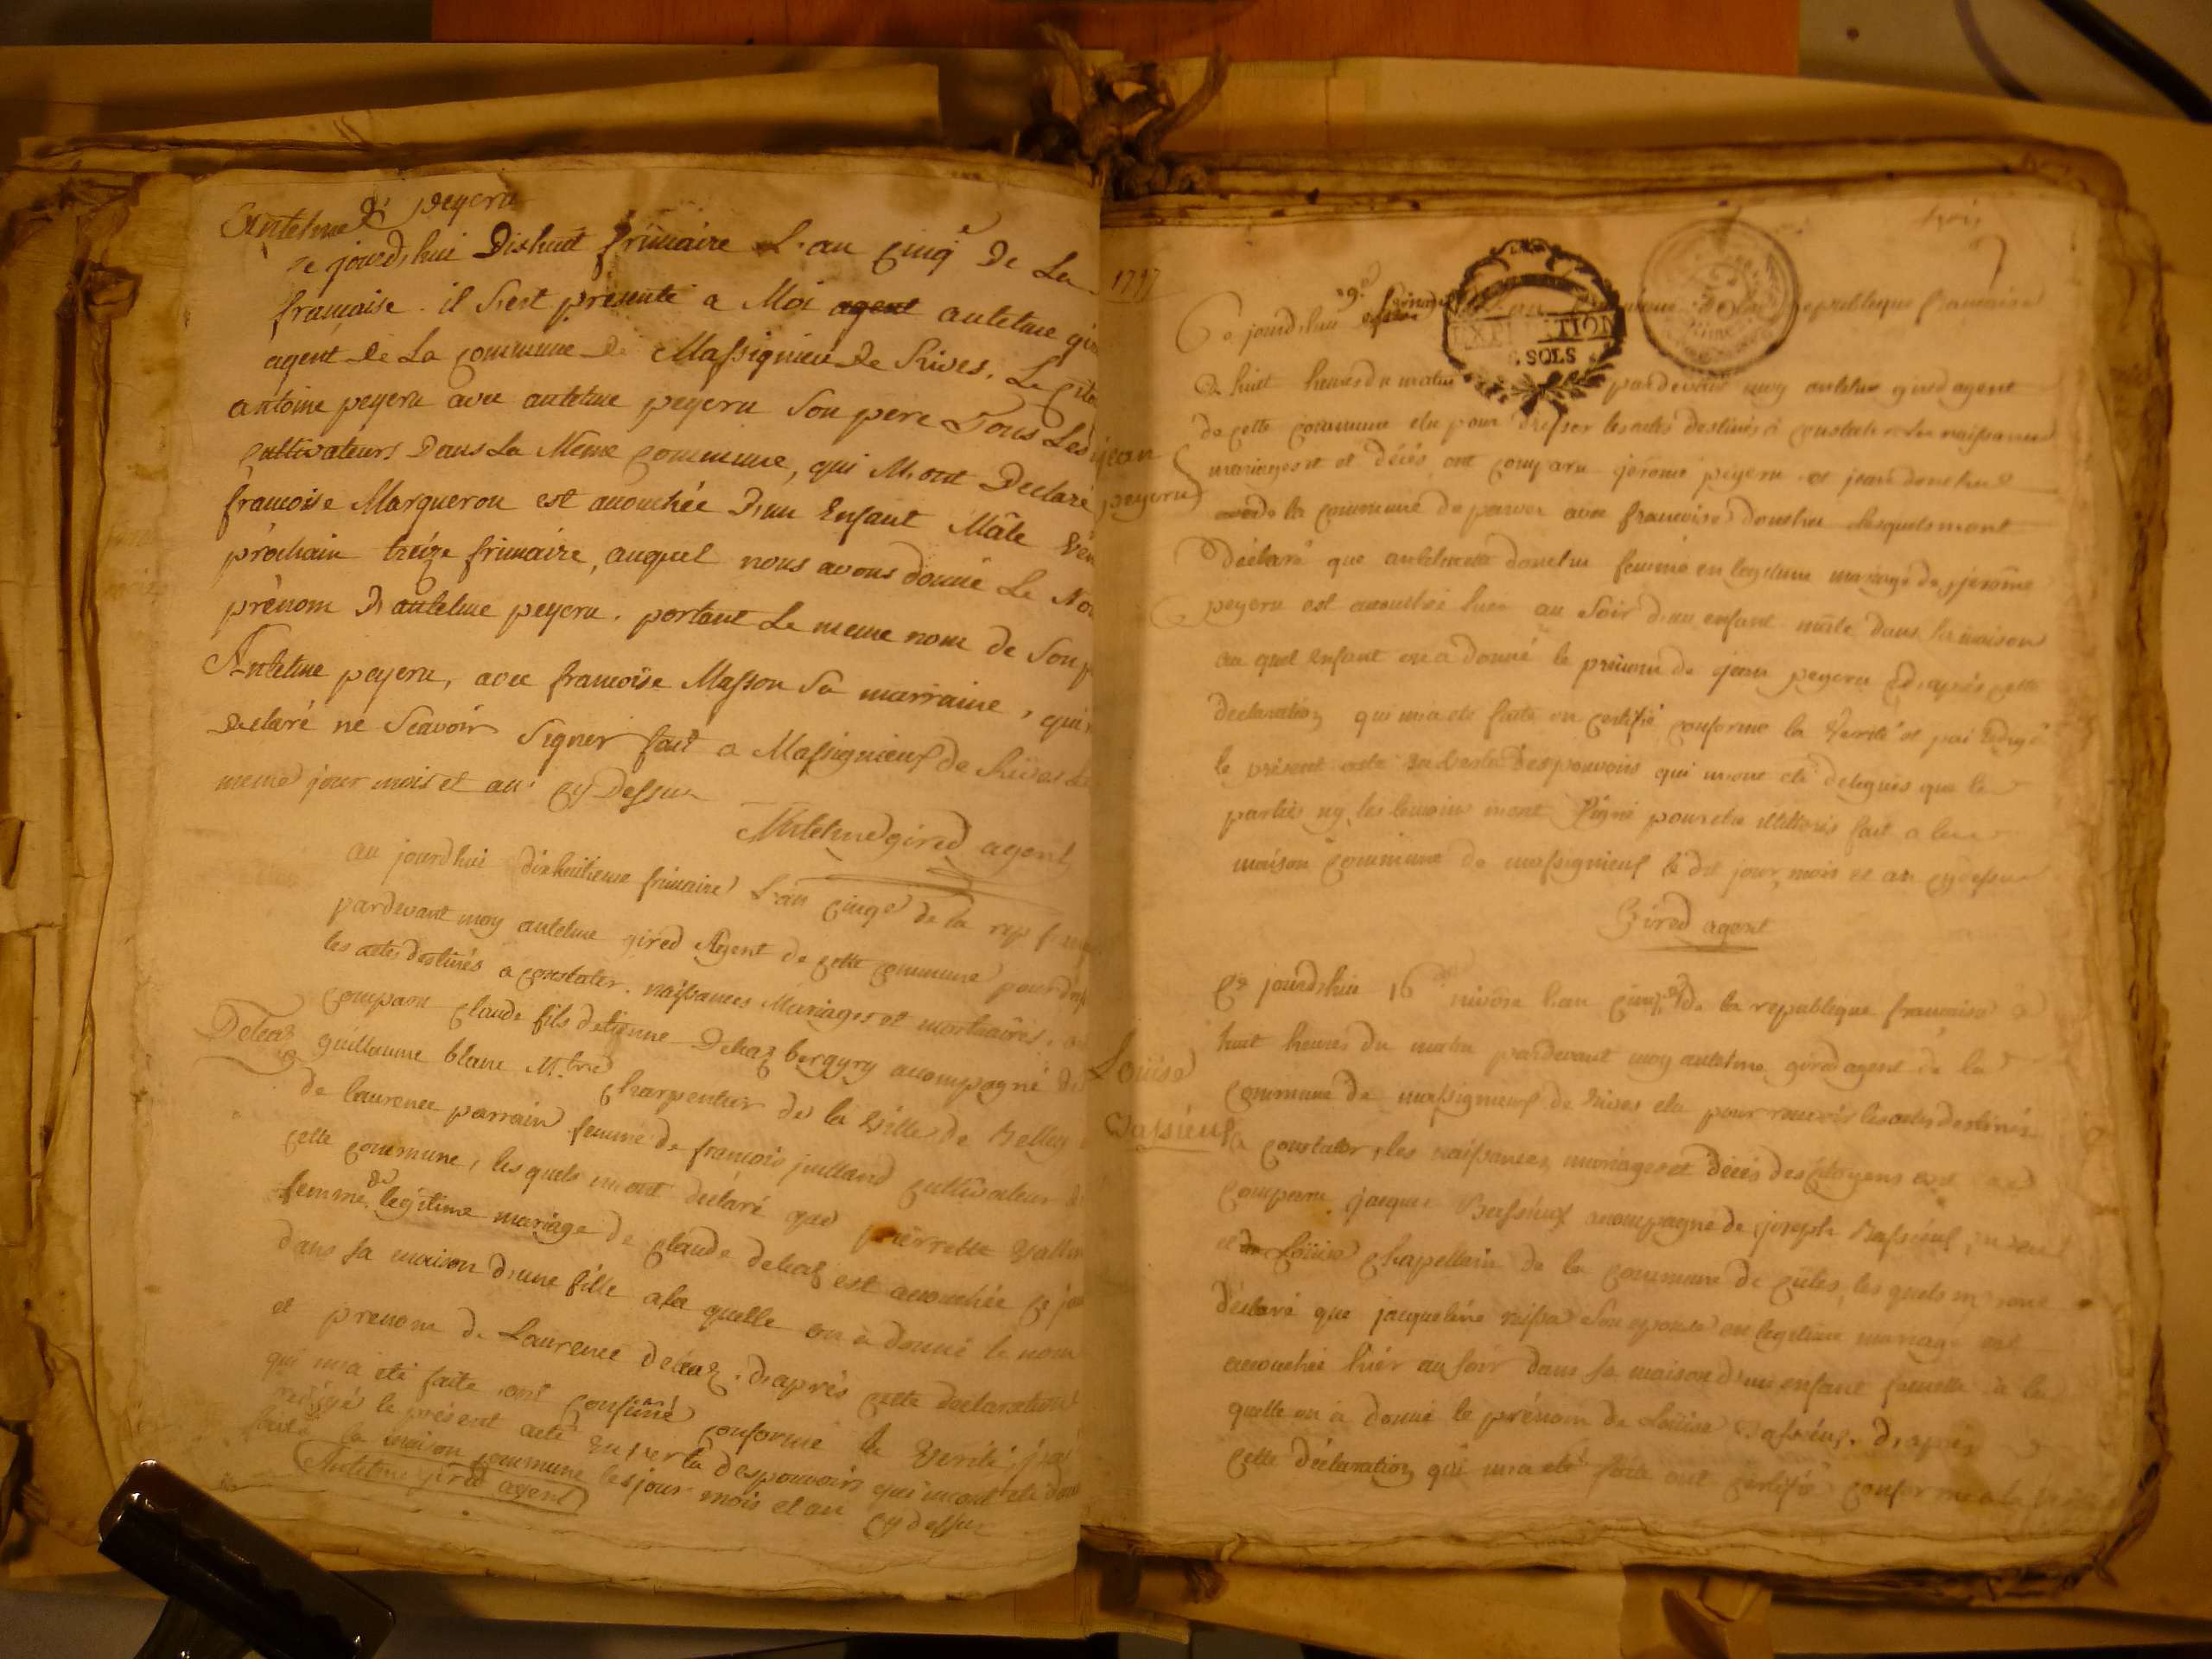 Antelme peyeru
Ce jourdhui Dishuit frimaire L'an Cinqe De La
francaise. il S'est presenté a Moi agent antelme gir
agent De La commune De Massignieu De Rives. Le Cito
antoine peyeru avec antelme peyeru Son pere Tous Les
Cultivateurs Dans La Même Commune, qui M'ont Declaré
francoise Marqueron est accouchée D'un Enfant Mâle
prochain treize frimaire, auquel nous avons donné Le No
prénom D'antelme peyeru. portant Le meme nom de Son p
Antelme peyeru, avec francoise Masson Sa marraine, qui
Declaré ne Scavoir Signer fait a Massignieuf de Rives Le
meme jour mois et an Cy Dessus
Antelme gired agent
au jourdhui dixhuitieme frimaire L'an Cinqe de la rep
pardevant moy antelme gired Agent de Cette Commune pour
les actes destinés a Constater. naissances Mariages et mortuaires.
Comparu Claude fils detienne Deleaz accompagné de
Deleaz
guillaume blanc M.tre Charpentier de la Ville de Belley
de laurence parrain femme de francois juilland Cultivateur
Cette Commune, les quels m'ont déclaré que pierrette
femme de legitime mariage de Claude deleaz est accouchée Ce jour
dans sa maison d'une fille a la quelle on a donné le nom
et prenom de Laurence deleaz. D'aprés Cette declaration
qui m'a eté faite ont conforme la Verité, j'ai
redigé le présent acte En Vertu des pouvoirs qui m'ont eté
fait a la maison Commune les jour mois et an Cy dessus
Antelme gired agent
1797
Ce jourdhui 9e l'an republique francaise
EXPEDITION
SOLS
a huit heures du matin pardevant moy antelme gired agent
de Cette Commune elu pour dresser les actes destinés a Constater les naissances
jean
peyeru
mariages et décés ont Comparu jerome peyeru et jean
de la Commune de avec francoise lesquels m'ont
Déclaré que femme en legitime mariage de jerôme
peyeru est accouchée hier au Soir d'un enfant mâle dans la maison
au quel enfant on a donné le prénom de jean peyeru D'aprés Cette
declaration qui m'a eté faite on Certifié Conforme la Verité et j'ai redigé
le présent acte En Vertu des pouvoirs qui m'ont eté delegués que les
parties ny les temoins n'ont Signé pour etre illitterés fait a la
maison Commune de massignieuf le dit jour, mois et an Cy dessus
Gired agent
Ce jourdhui 16 nivôse l'an Cinqe de la republique francaise à
huit heures du matin pardevant moy antelme gired agent de la
Louise
Commune de massignieuf de Rives elu pour recevoir les actes destinés
Bassieuf
a Constater, les naissances, mariages et décés des Citoyens est
Comparu jacques Bassieuf accompagné de joseph Bassieuf,
et Louise Chapellain de la Commune de les quels m'ont
déclaré que jacqueline Son epouse en legitime mariage est
accouchée hier au soir dans sa maison d'un enfant femelle à la
quelle on à donné le prénom de Louise Bassieuf. D'aprés
Cette déclaration qui m'a eté faite ont Certifié Conforme a la Verité